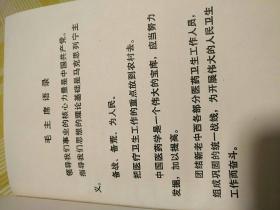 毛主席语录
领导我们事业的核心力量是中国共产党。
指导我们思想的理论基础是马克思列宁主
义。
备战、备荒、为人民。
把医疗卫生工作的重点放到农村去。
中国医药学是一个伟大的宝库，应当努力
发掘，加以提高。
团结新老中西各部分医药卫生工作人员，
组成巩固的统一战线，为开展伟大的人民卫生
工作而奋斗。